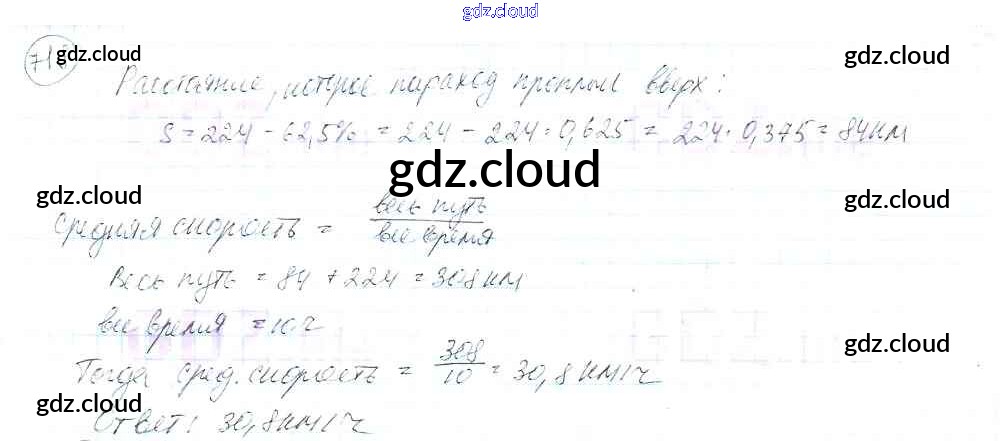 gdz.cloud
718 gdz.cloud gdz.cloud
Расстояние, которое пароход проплыл вверх:
S = 224 - 62,5% = 224 - 224 · 0,625 = 224 · 0,375 = 84 км
gdz.cloud
gdz.cloud gdz.cloud
Средняя скорость = весь путь / все время
Весь путь = 84 + 224 = 308 км
все время = 10 ч
gdz.cloud
Тогда сред. скорость = 308/10 = 30,8 км/ч
gdz.cloud
Ответ: 30,8 км/ч